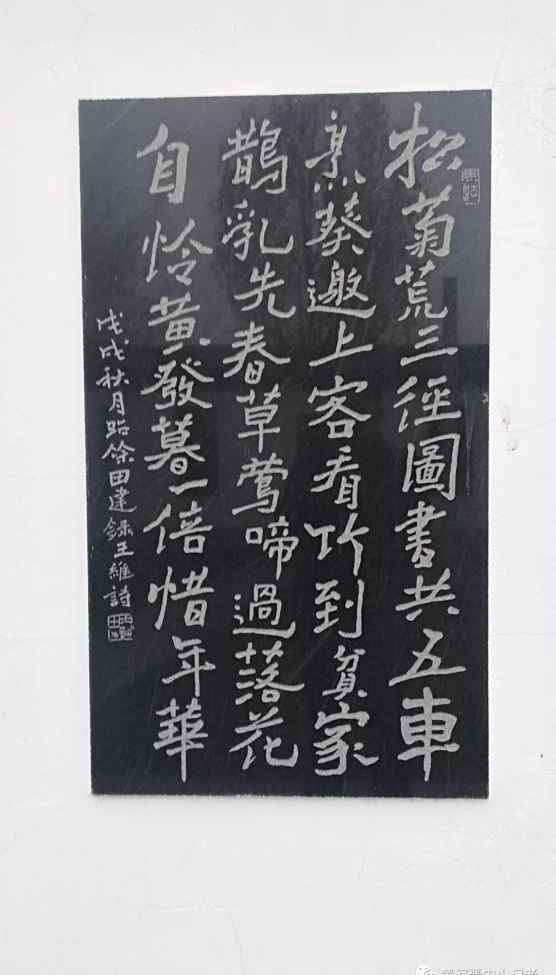 松菊荒三径圖書共五車
烹葵邀上客看竹到貧家
鵲乳先春草鶯啼過落花
自怜黄發暮一倍惜年華
戊戌秋月
田建録王維詩